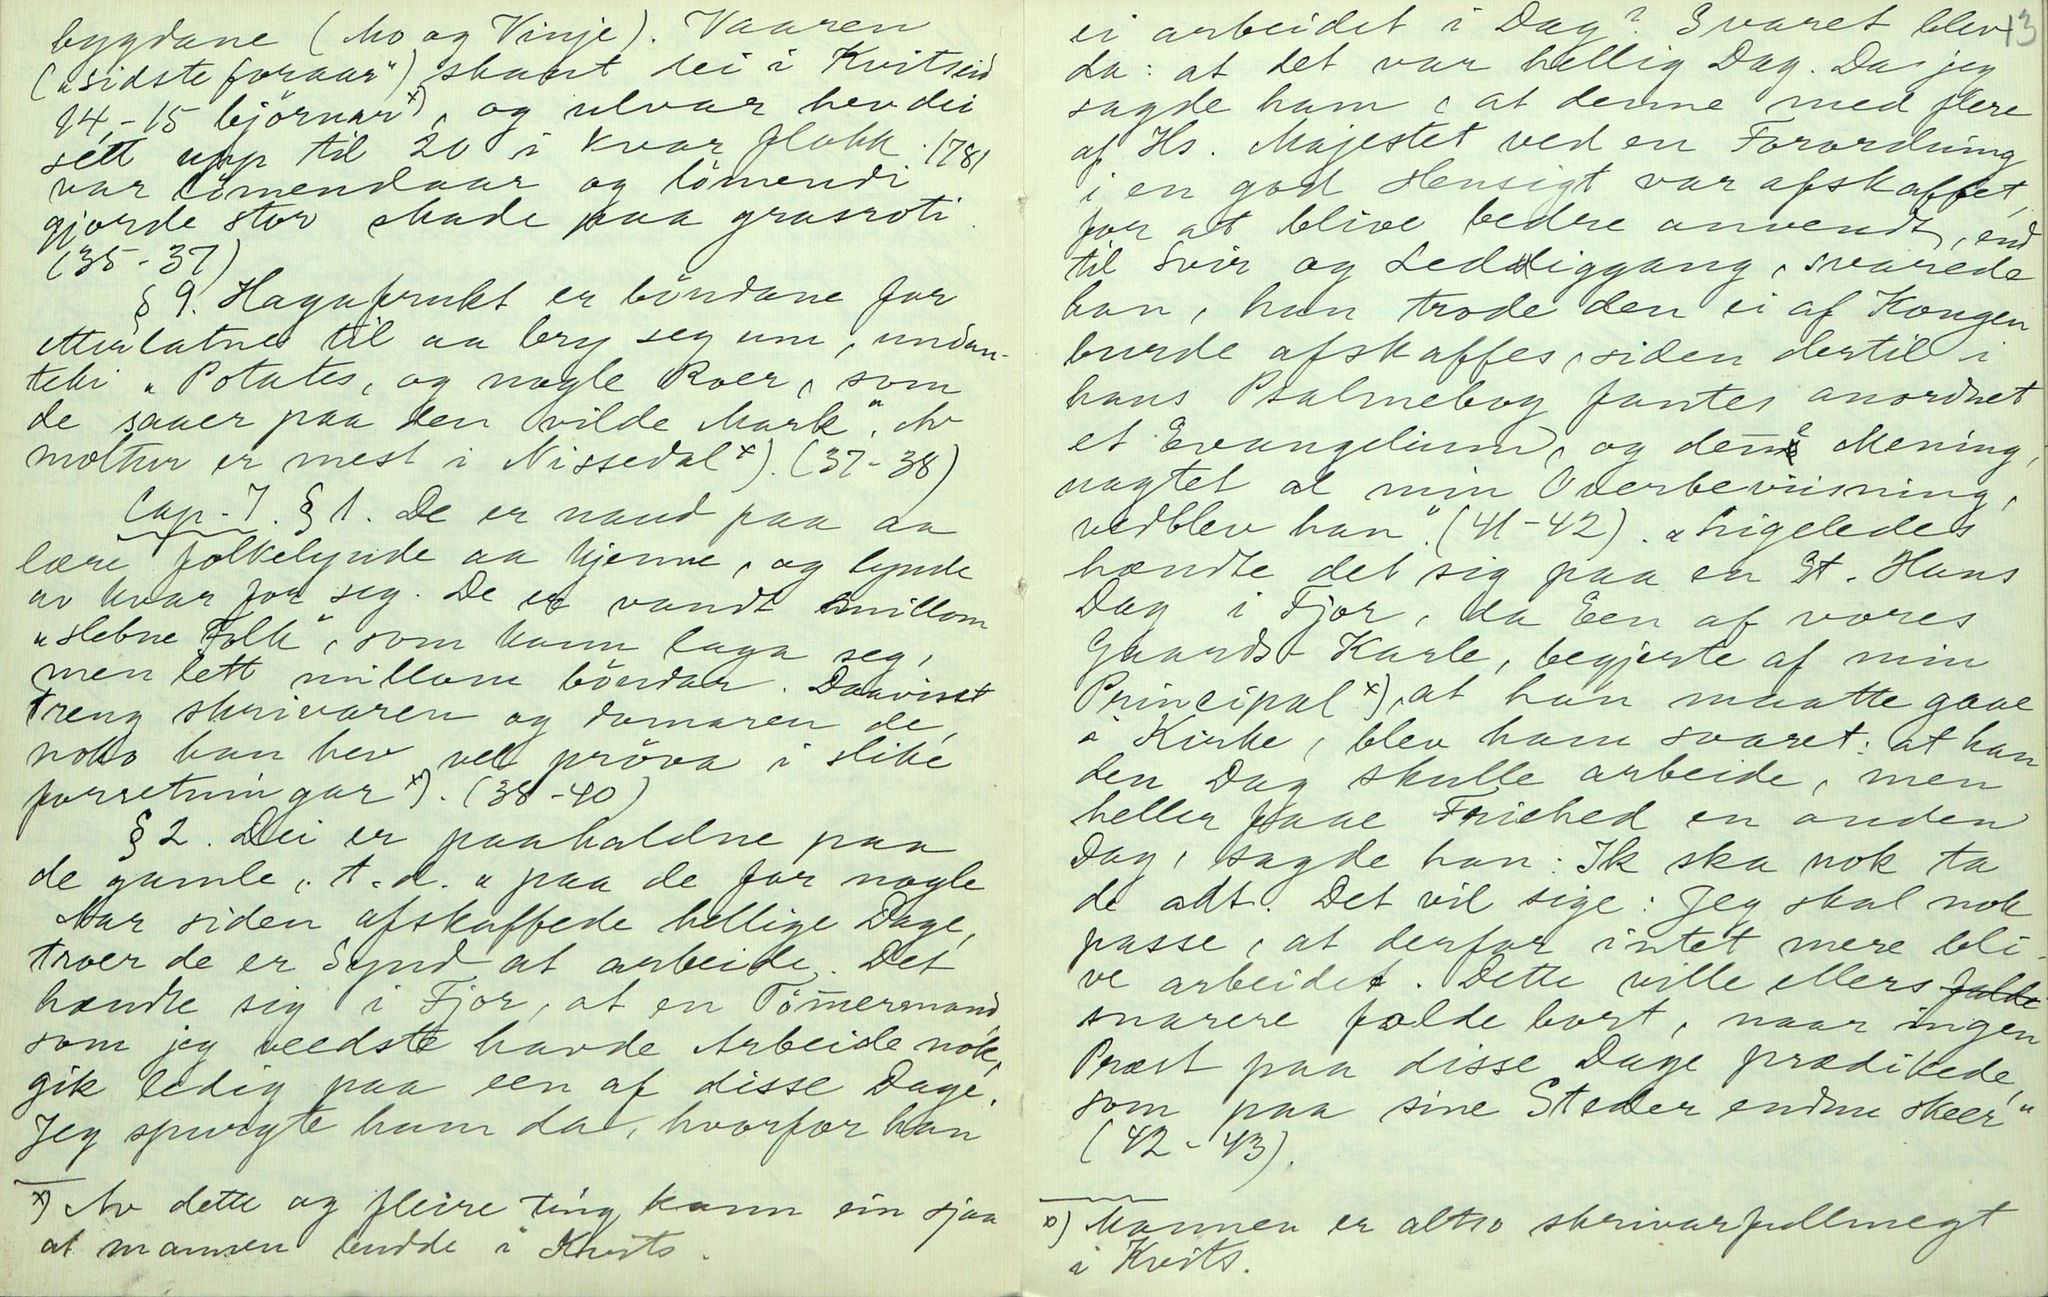 bygdane (Mo og Vinje). Vaaren
("sidste foraar") skaut dei i Kvitseid
14-15 björnar x), og ulvar hev dei
sett upp til 20 i kvar flokk. 1781
var lömendaar og lömendi
gjorde stor skade paa grasroti
(35-37)
§ 9. Hagafrukt er böndane for
etterlatne til aa bry seg um, undan-
teki "Potates, og nogle Roer, som
de saaer paa den vilde Mark". Av
molter er mest i Nissedal x). (37-38)
Cap. 7. § 1. De er vand paa aa
lære folkelynde aa kjenne, og lynde
av kvar for seg. De er vandt imillom
"slebne Folk", som kann laga seg,
men lett millom böndar. Daaviset
treng skrivaren og domaren de,
noko han hev vel pröva i slike
forretningar x). (38-40)
§ 2. Dei er paahaldne paa
de gamle, t.d. "paa de for nogle
Aar siden afskaffede hellige Dage,
troer de er Synd at arbeide. Det
hændte sig i Fjor, at en Tömermand
som jeg veedste havde Arbeide nok,
gik ledig paa een af disse Dage.
Jeg spurgte ham da, hvorfor han
x) Av dette og fleire ting kann ein sjaa
at mannen budde i Kvits.
13
ei arbeidet i Dag? Svaret blev
da: at det var hellig Dag. Da jeg
sagde ham, at denne med flere
af Hs. Majestet ved en Forordning
i en god Hensigt var afskaffet,
for at blive bedre anvendt, end
til Svir og Leddiggang, svarede
han, han trode den ei af Kongen
burde afskaffes, siden dertil i
hans Psalmebog fantes anordnet
et Evangelium, og denne Mening,
uagtet al min Overbeviisning,
vedblev han". (41-42). "Ligeledes
hændte det sig paa en St. Hans
Dag i Fjor, da Een af vores
Gaards-Karle, begjerte af min
Principal x), at han maatte gaae
i Kirke, blev ham svaret: at han
den Dag skulle arbeide, men
heller faae Friehed en anden
Dag, sagde han: Ik ska nok ta
de adt. Det vil sige: Jeg skal nok
passe, at derfor intet mere bli-
ve arbeidet. Dette ville ellers falde
snarere falde bort, naar ingen
Præst paa disse Dage prædikede,
som paa sine Steder endnu skeer"
(42-43).
x) Mannen er altso skrivarfullmegt
i Kvits.